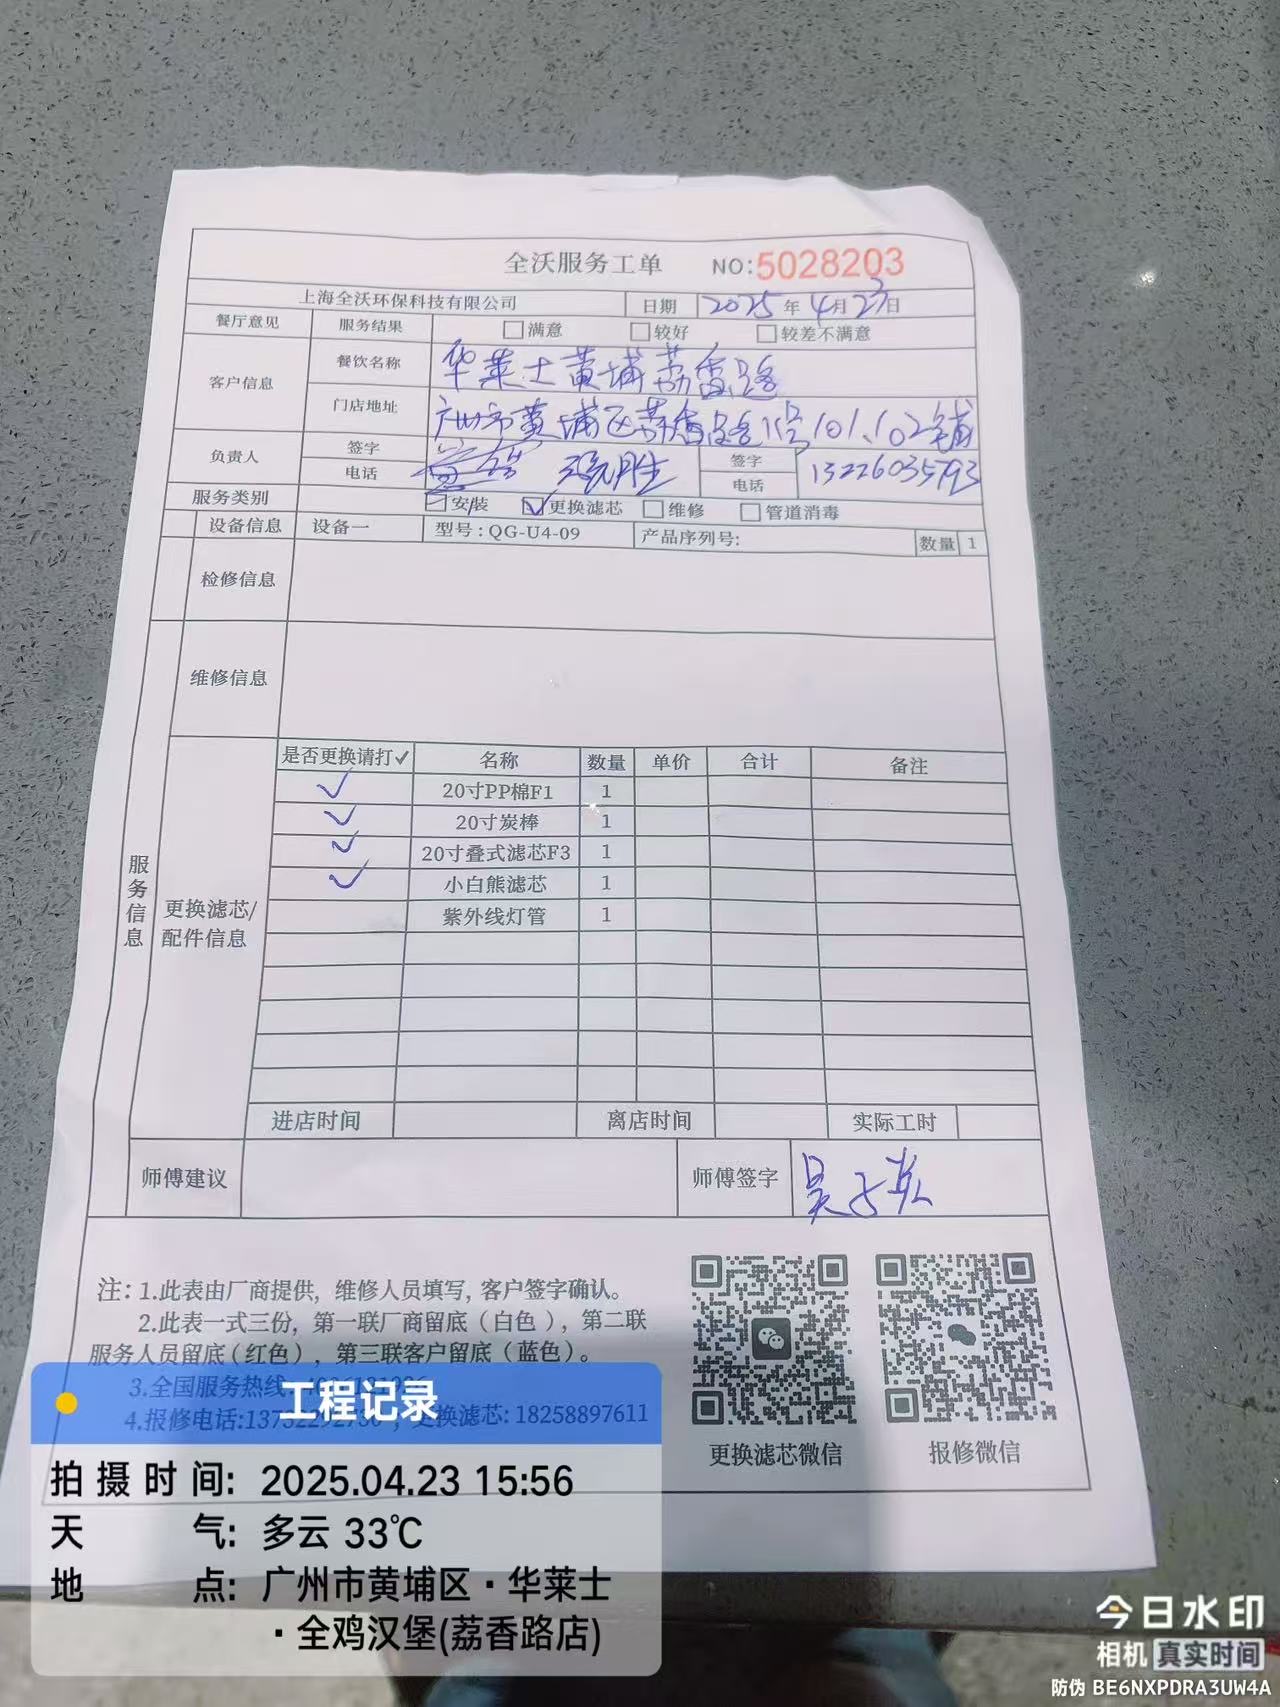 全沃服务工单 NO:5028203
上海全沃环保科技有限公司 日期 2025年4月23日
餐厅意见 服务结果 □满意 □较好 □较差不满意
客户信息 餐饮名称 华莱士黄埔荔香路
门店地址 广州市黄埔区荔香路11号101、102铺
负责人 签字 签字
电话 电话 13226035793
服务类别 □安装 ☑更换滤芯 □维修 □管道消毒
设备信息 设备一 型号:QG-U4-09 产品序列号: 数量 1
检修信息
维修信息
服务信息
更换滤芯/配件信息
是否更换请打✓ 名称 数量 单价 合计 备注
✓ 20寸PP棉F1 1
✓ 20寸炭棒 1
✓ 20寸叠式滤芯F3 1
✓ 小白熊滤芯 1
紫外线灯管 1
进店时间 离店时间 实际工时
师傅建议 师傅签字
注:1.此表由厂商提供,维修人员填写,客户签字确认。
2.此表一式三份,第一联厂商留底(白色),第二联
服务人员留底(红色),第三联客户留底(蓝色)。
3.全国服务热线:
4.报修电话: 更换滤芯:18258897611
更换滤芯微信 报修微信
工程记录
拍摄时间:2025.04.23 15:56
天气:多云 33℃
地点:广州市黄埔区·华莱士
·全鸡汉堡(荔香路店)
今日水印
相机 真实时间
防伪 BE6NXPDRA3UW4A